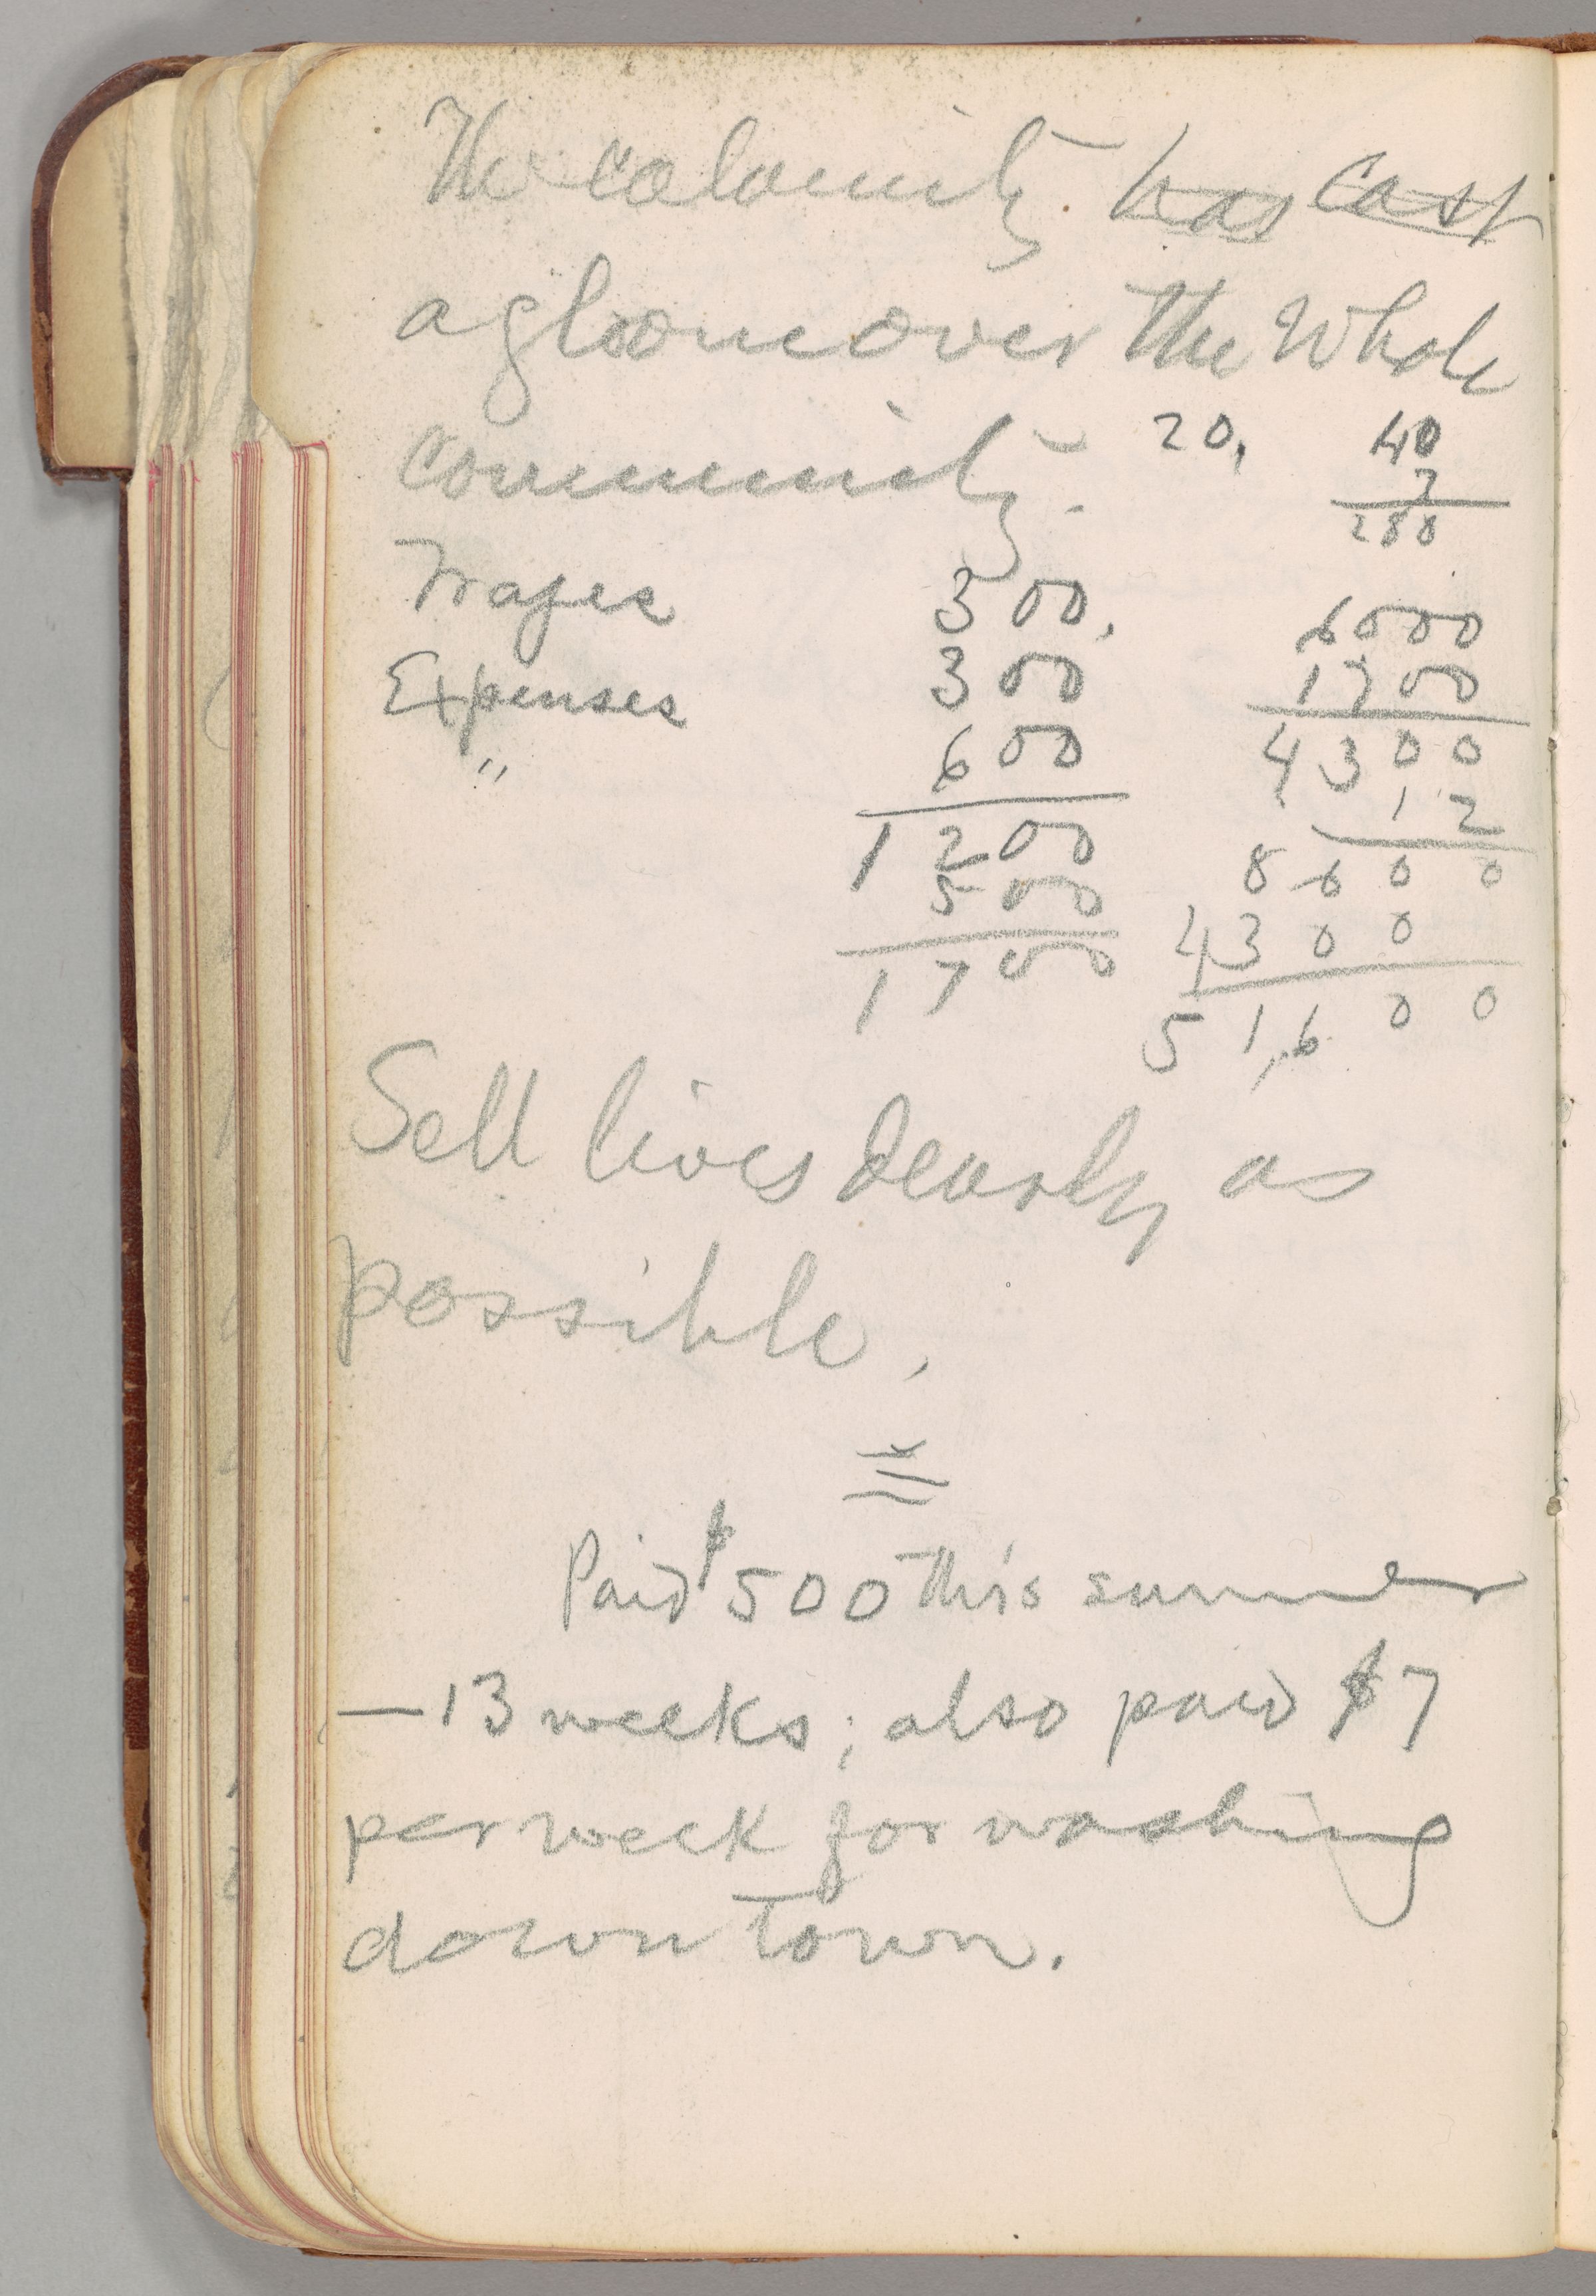 The calamity has cast
a gloom over the whole
community.
20, 40
7
280
Wages 300, 6000
Expenses 300 1700
" 600 4300
1200 12
500 8600
1700 4300
51,600
Sell lives dearly as
possible.
Paid $500 this summer
—13 weeks; also paid $7
per week for washing
down town.